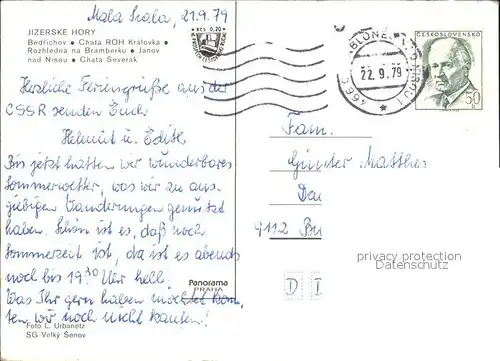 Mala Skala, 21.9.79
JIZERSKE HORY
Bedřichov • Chata ROH Královka •
Rozhledna na Bramberku • Janov
nad Nisou • Chata Severák
Kčs 0,20
ČESKOSLOVENSKO
50
22.9.79
466 01
Herzliche Feriengrüße aus der
CSSR senden Euch
Helmut u. Edith.
Bis jetzt hatten wir wunderbares
Sommerwetter, was wir zu aus-
giebigen Wanderungen genutzt
haben. Schön ist es, daß noch
Sommerzeit ist, da ist es abends
noch bis 19.30 Uhr hell.
Was Ihr gern haben möchtet konn-
ten wir noch nicht kaufen!
Fam.
Günter Matthes
9112
privacy protection
Datenschutz
Panorama
PRAHA
Foto L. Urbanetz
SG Velký Šenov